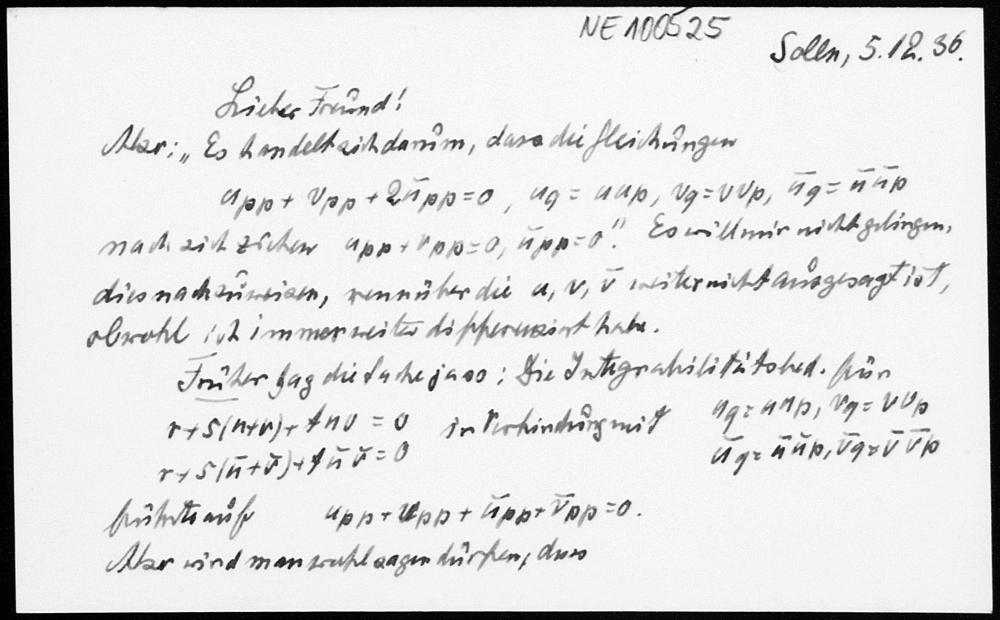 NE100525
Solln, 5.12.36.
Lieber Freund!
Also: „Es handelt sich darum, dass die Gleichungen
u_pp + v_pp + 2ū_pp = 0, u_q = u u_p, v_q = v v_p, ū_q = ū ū_p
nach sich ziehen u_pp + v_pp = 0, ū_pp = 0". Es will mir nicht gelingen,
dies nachzuweisen, wenn über die u, v, v̄ weiter nicht ausgesagt ist,
obwohl ich immer weiter differenziert habe.
Früher lag die Sache ja so: Die Integrabilitätsbed. für
r + s(u+v) + t u v = 0 in Verbindung mit u_q = u u_p, v_q = v v_p
r + s(ū+v̄) + t ū v̄ = 0 ū_q = ū ū_p, v̄_q = v̄ v̄_p
führte auf u_pp + v_pp + ū_pp + v̄_pp = 0.
Also wird man wohl sagen dürfen, dass